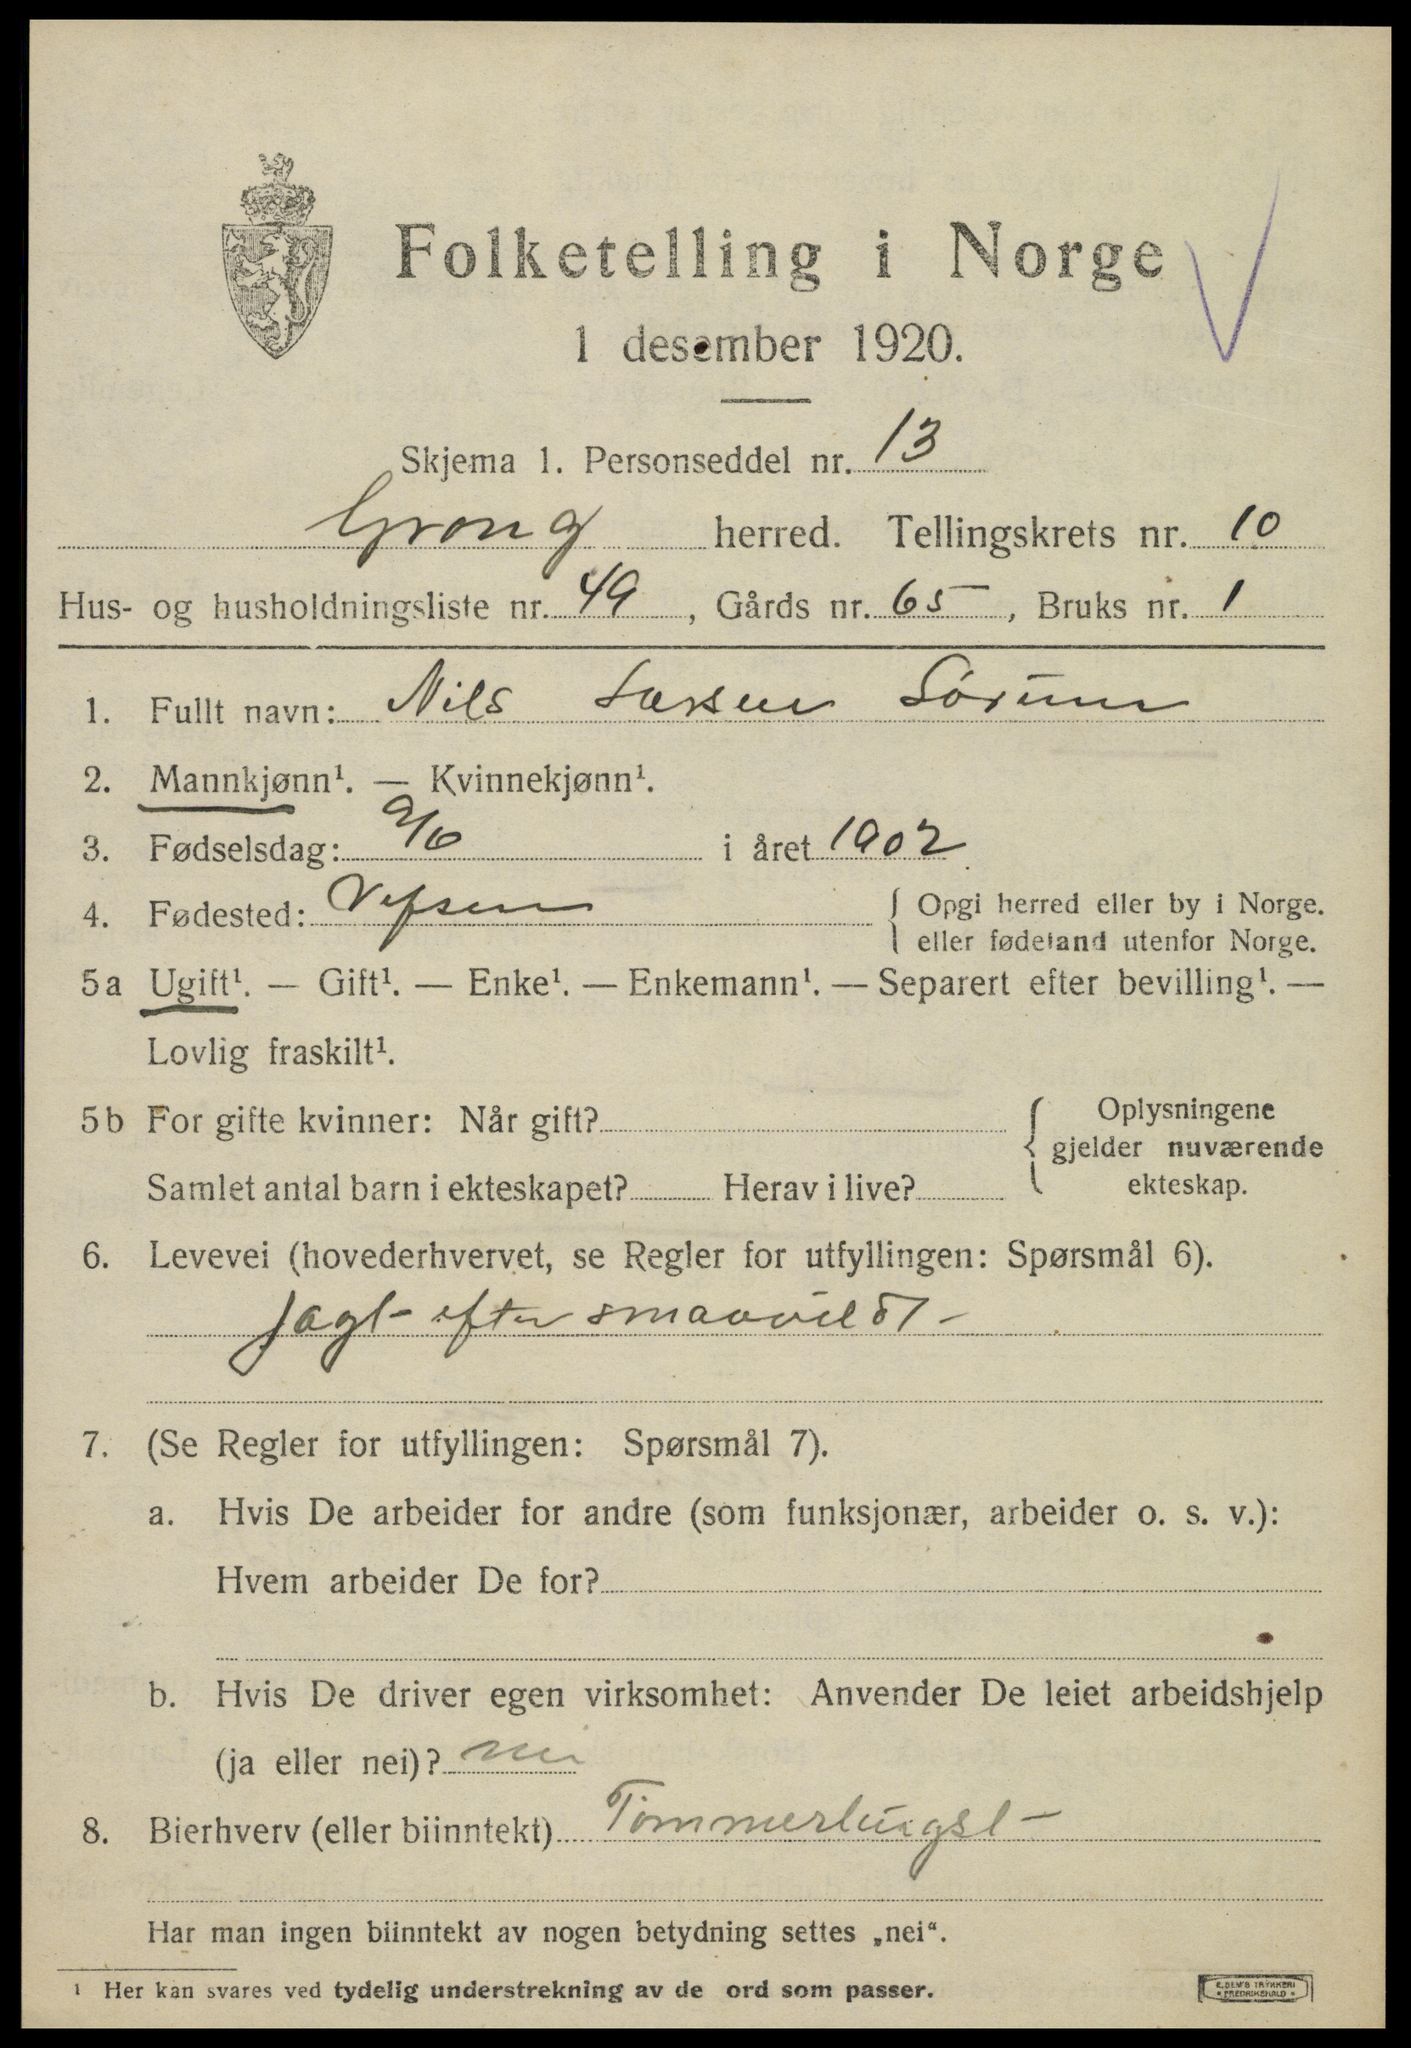 Folketelling i Norge
1 desember 1920.
Skjema 1. Personseddel nr. 13
Grong herred. Tellingskrets nr. 10
Hus- og husholdningsliste nr. 49, Gårds nr. 65, Bruks nr. 1
1. Fullt navn: Nils Larsen Sörum
2. Mannkjønn¹. — Kvinnekjønn¹.
3. Fødselsdag: 9/6 i året 1902
4. Fødested: Vefsen { Opgi herred eller by i Norge.
eller fødeland utenfor Norge.
5a Ugift¹. — Gift¹. — Enke¹. — Enkemann¹. — Separert efter bevilling¹. —
Lovlig fraskilt¹.
5b For gifte kvinner: Når gift? { Oplysningene
gjelder nuværende
Samlet antal barn i ekteskapet? Herav i live? ekteskap.
6. Levevei (hovederhvervet, se Regler for utfyllingen: Spørsmål 6).
Jagt efter smaavildt
7. (Se Regler for utfyllingen: Spørsmål 7).
a. Hvis De arbeider for andre (som funksjonær, arbeider o. s. v.):
Hvem arbeider De for?
b. Hvis De driver egen virksomhet: Anvender De leiet arbeidshjelp
(ja eller nei)? nei
8. Bierhverv (eller biinntekt)
Har man ingen biinntekt av nogen betydning settes „nei“.
¹ Her kan svares ved tydelig understrekning av de ord som passer.
E. SEM'S TRYKKERI
FREDRIKSHALD